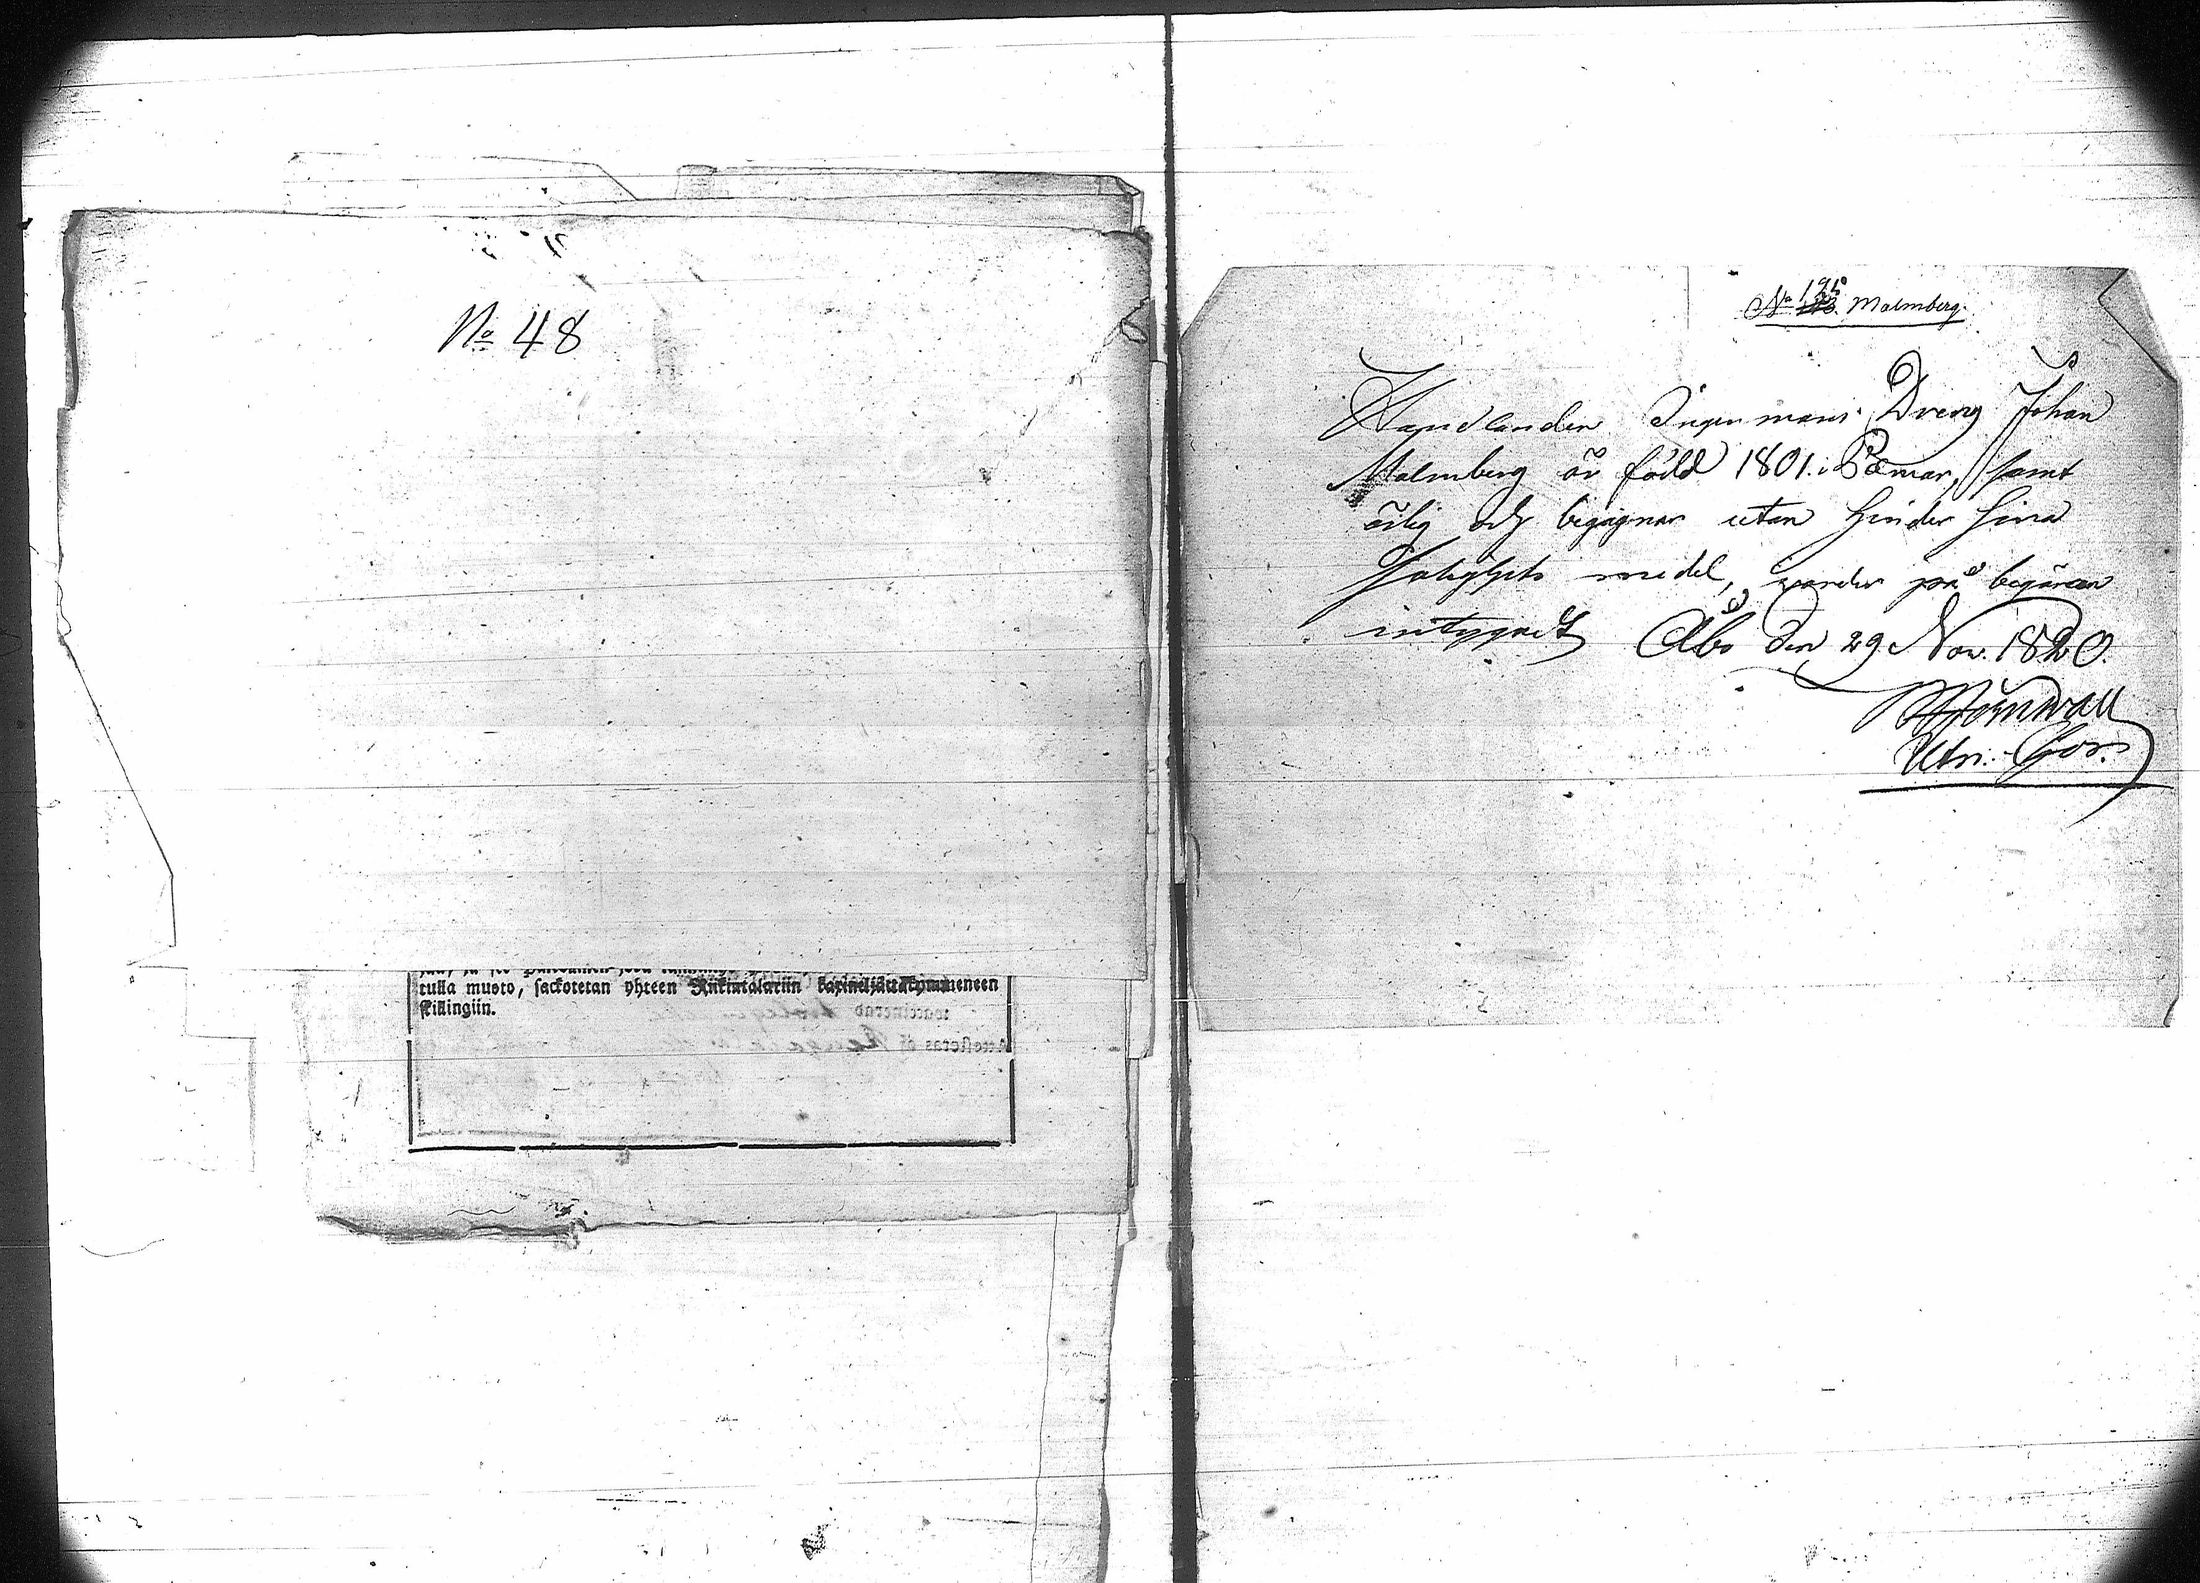 No 48
tulla muoto, sackotetan yhteen Rikintalariin
skillingiin.
No Malmberg.
Handlanden Ingermans Dreng Johan
Malmberg är född 1801. i Pemar, samt
ärlig och begagnar utan hinder sina
Salighets medel, warder på begäran
intygadt Åbo den 29 Nov. 1820.